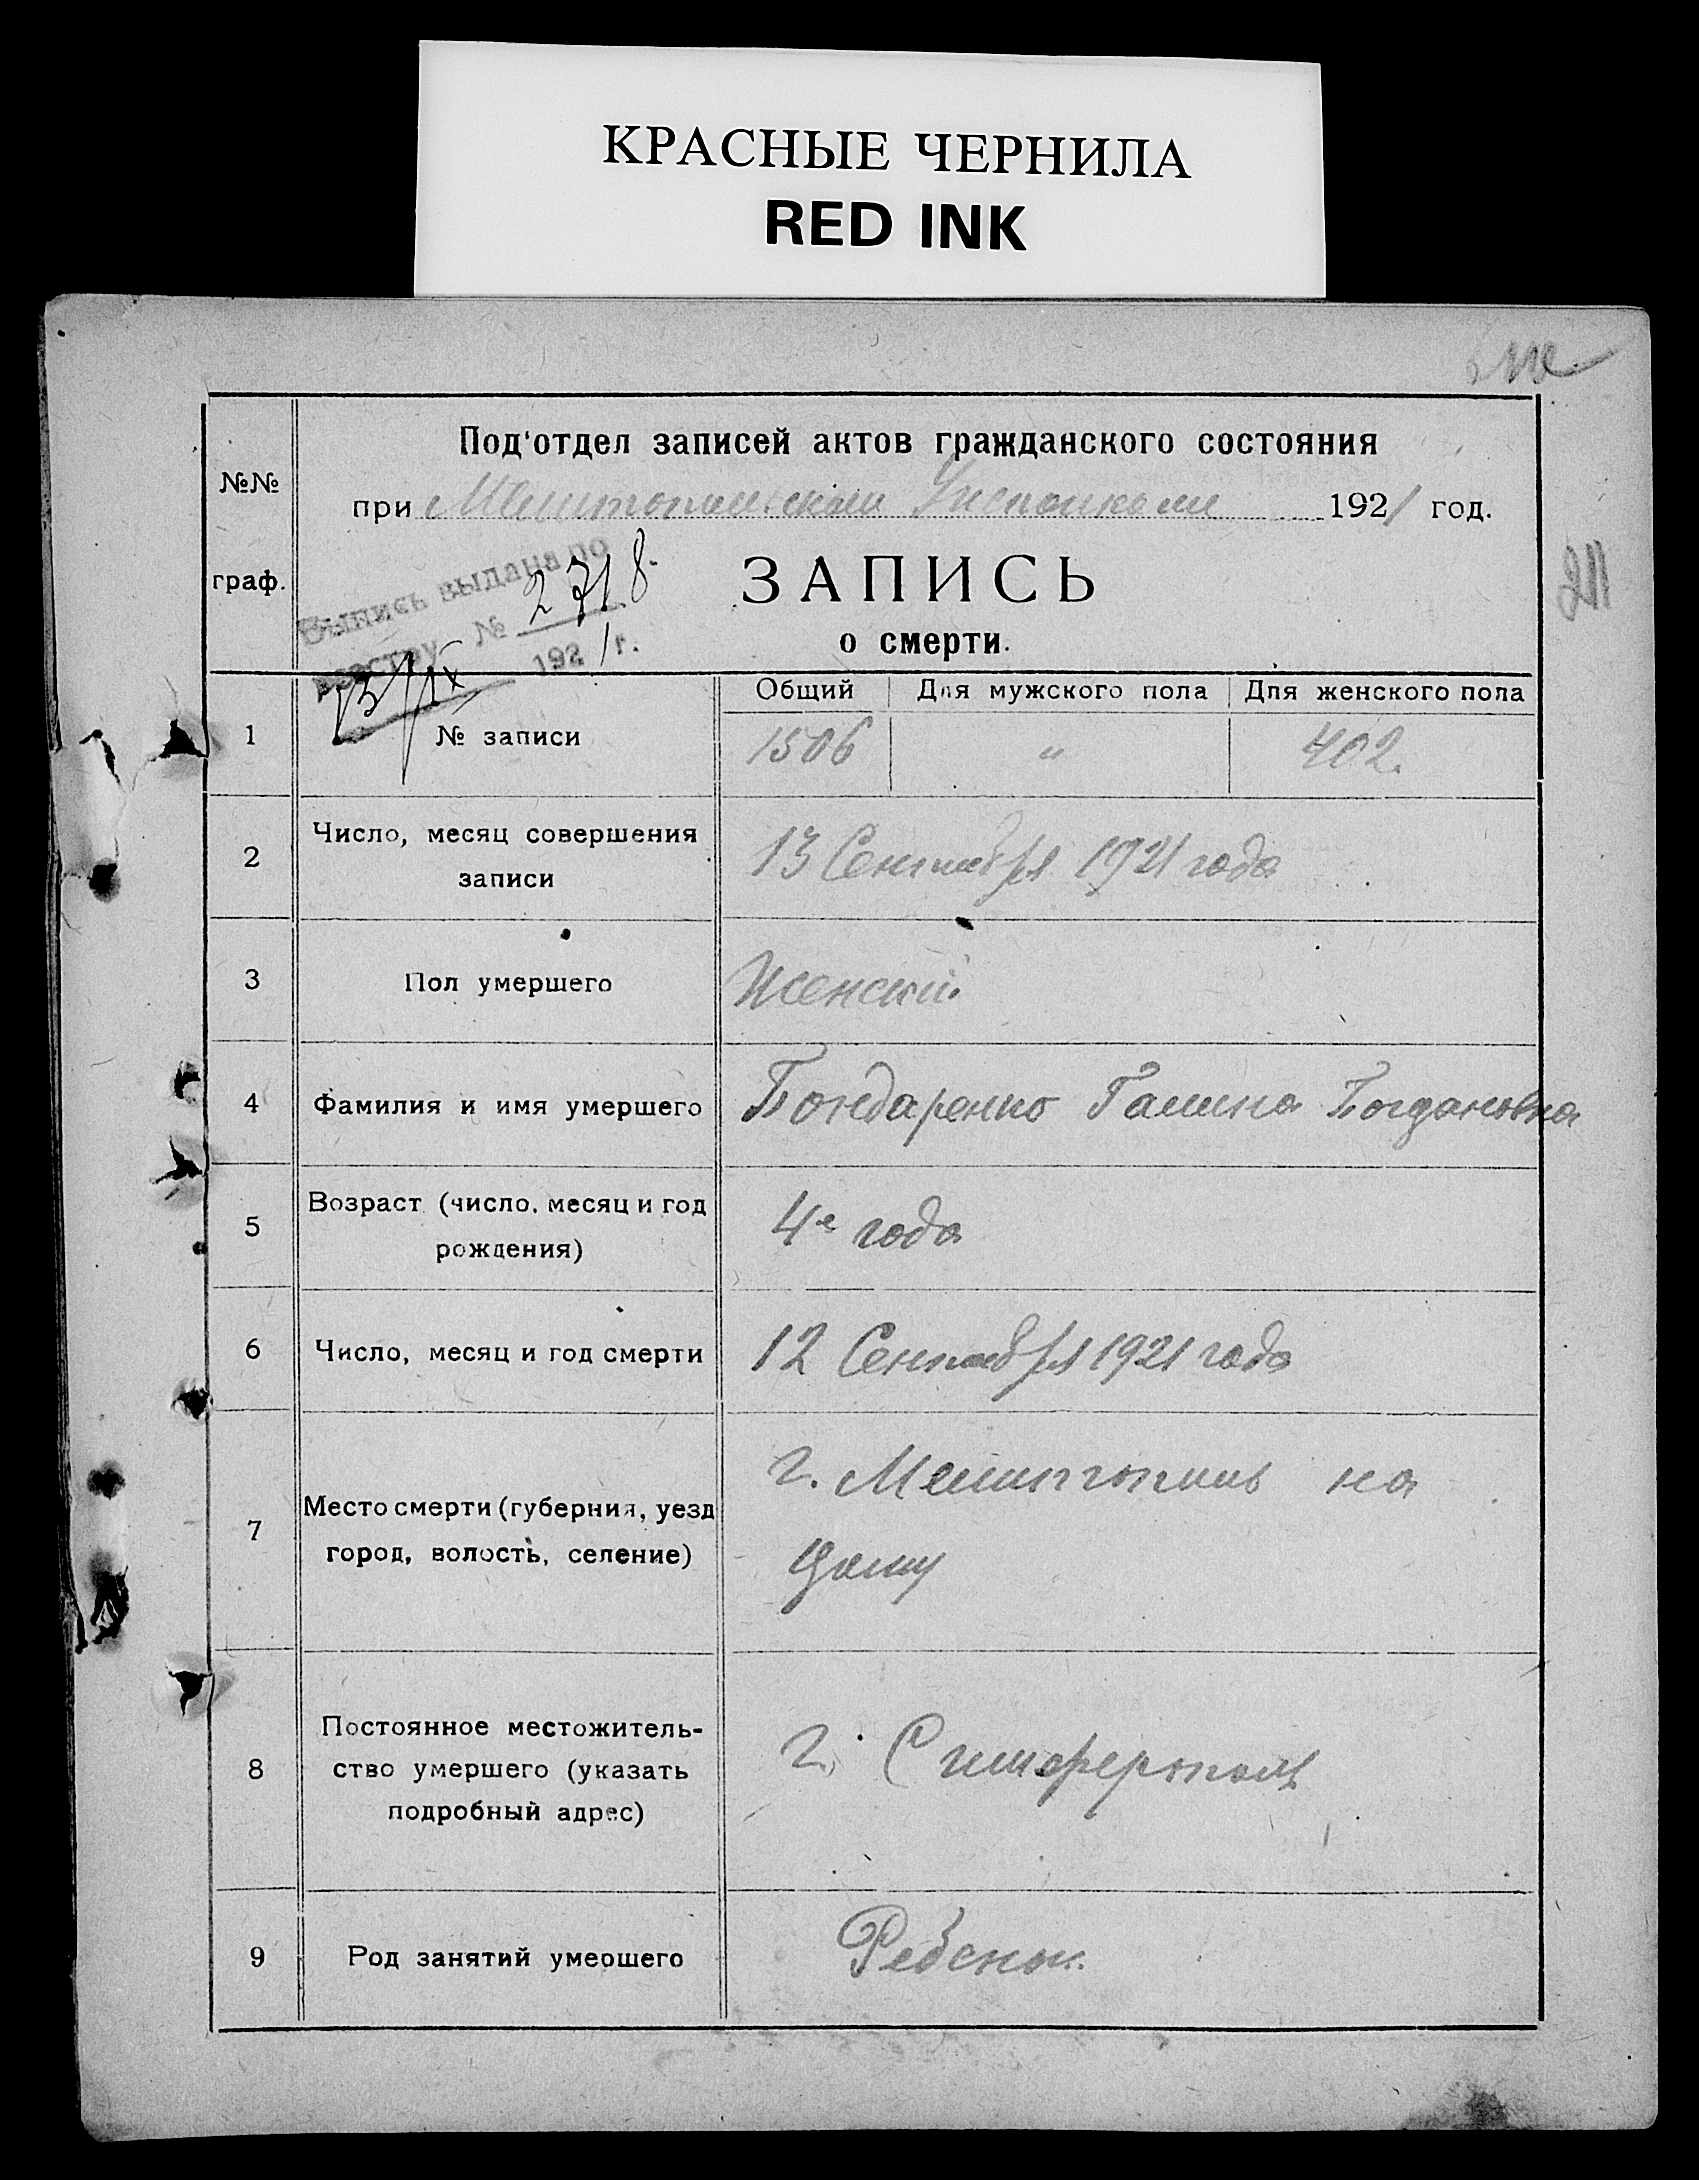 КРАСНЫЕ ЧЕРНИЛА
RED INK
№№
граф.
Под'отдел записей актов гражданского состояния
при Мелитопольском Уисполкоме 1921 год.
211
Выпись выдана по
реестру № 2718.
13/IX 1921 г.
ЗАПИСЬ
о смерти.
Общий Для мужского пола Для женского пола
1 № записи 1506 " 402.
2 Число, месяц совершения
записи
13 Сентября 1921 года
3 Пол умершего Женский.
4 Фамилия и имя умершего Бондаренко Галина Богдановна
5 Возраст (число, месяц и год
рождения)
4е года
6 Число, месяц и год смерти 12 Сентября 1921 года
7 Место смерти (губерния, уезд
город, волость, селение)
г. Мелитополь на
дому
8 Постоянное местожитель-
ство умершего (указать
подробный адрес)
г. Симферополь
9 Род занятий умершего Ребенок.